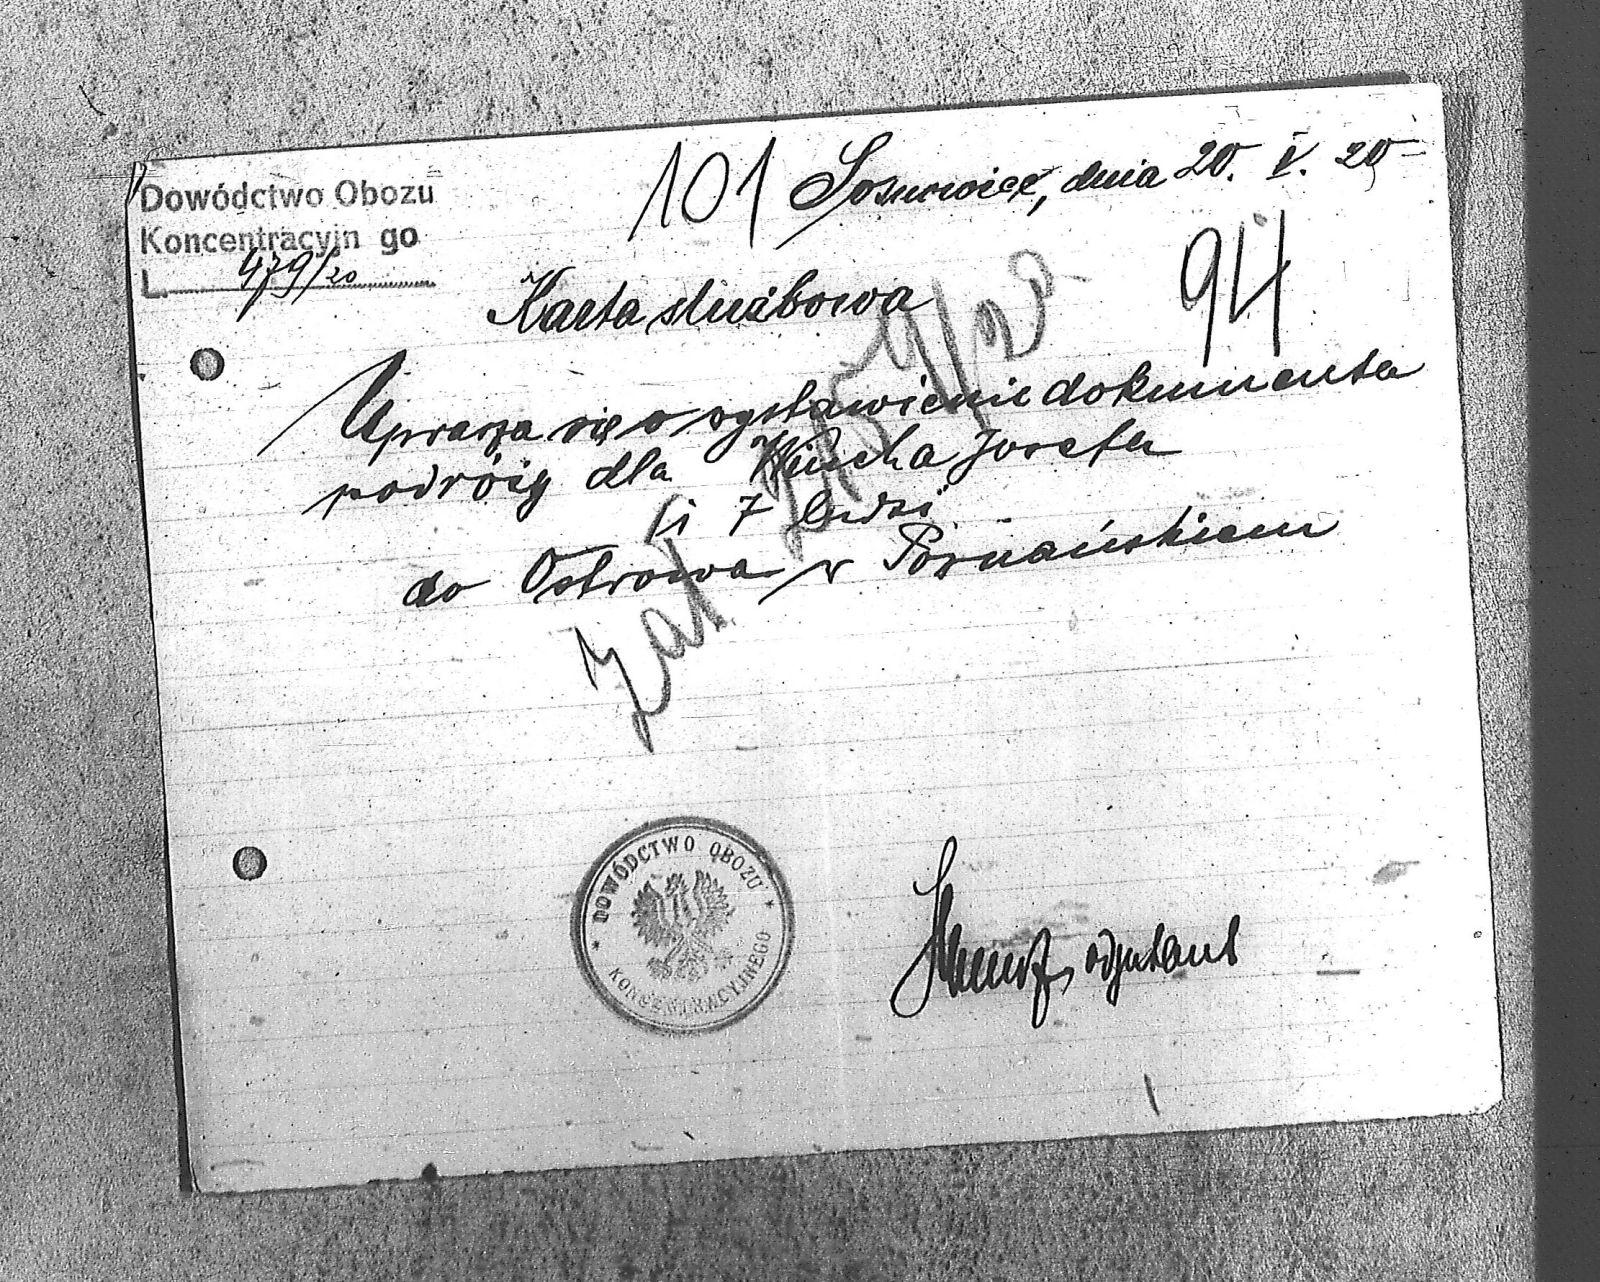 Dowódctwo Obozu
Koncentracyjn go
L. 479/20
101 Sosnowice, dnia 20. V. 20
94
Karta służbowa
Uprasza się o wystawienie dokumenta
podróży dla Józefa
i 7 ludzi
do Ostrowa w Poznańskiem
zał.
DOWÓDCTWO OBOZU
KONCENTRACYJNEGO
adjutant